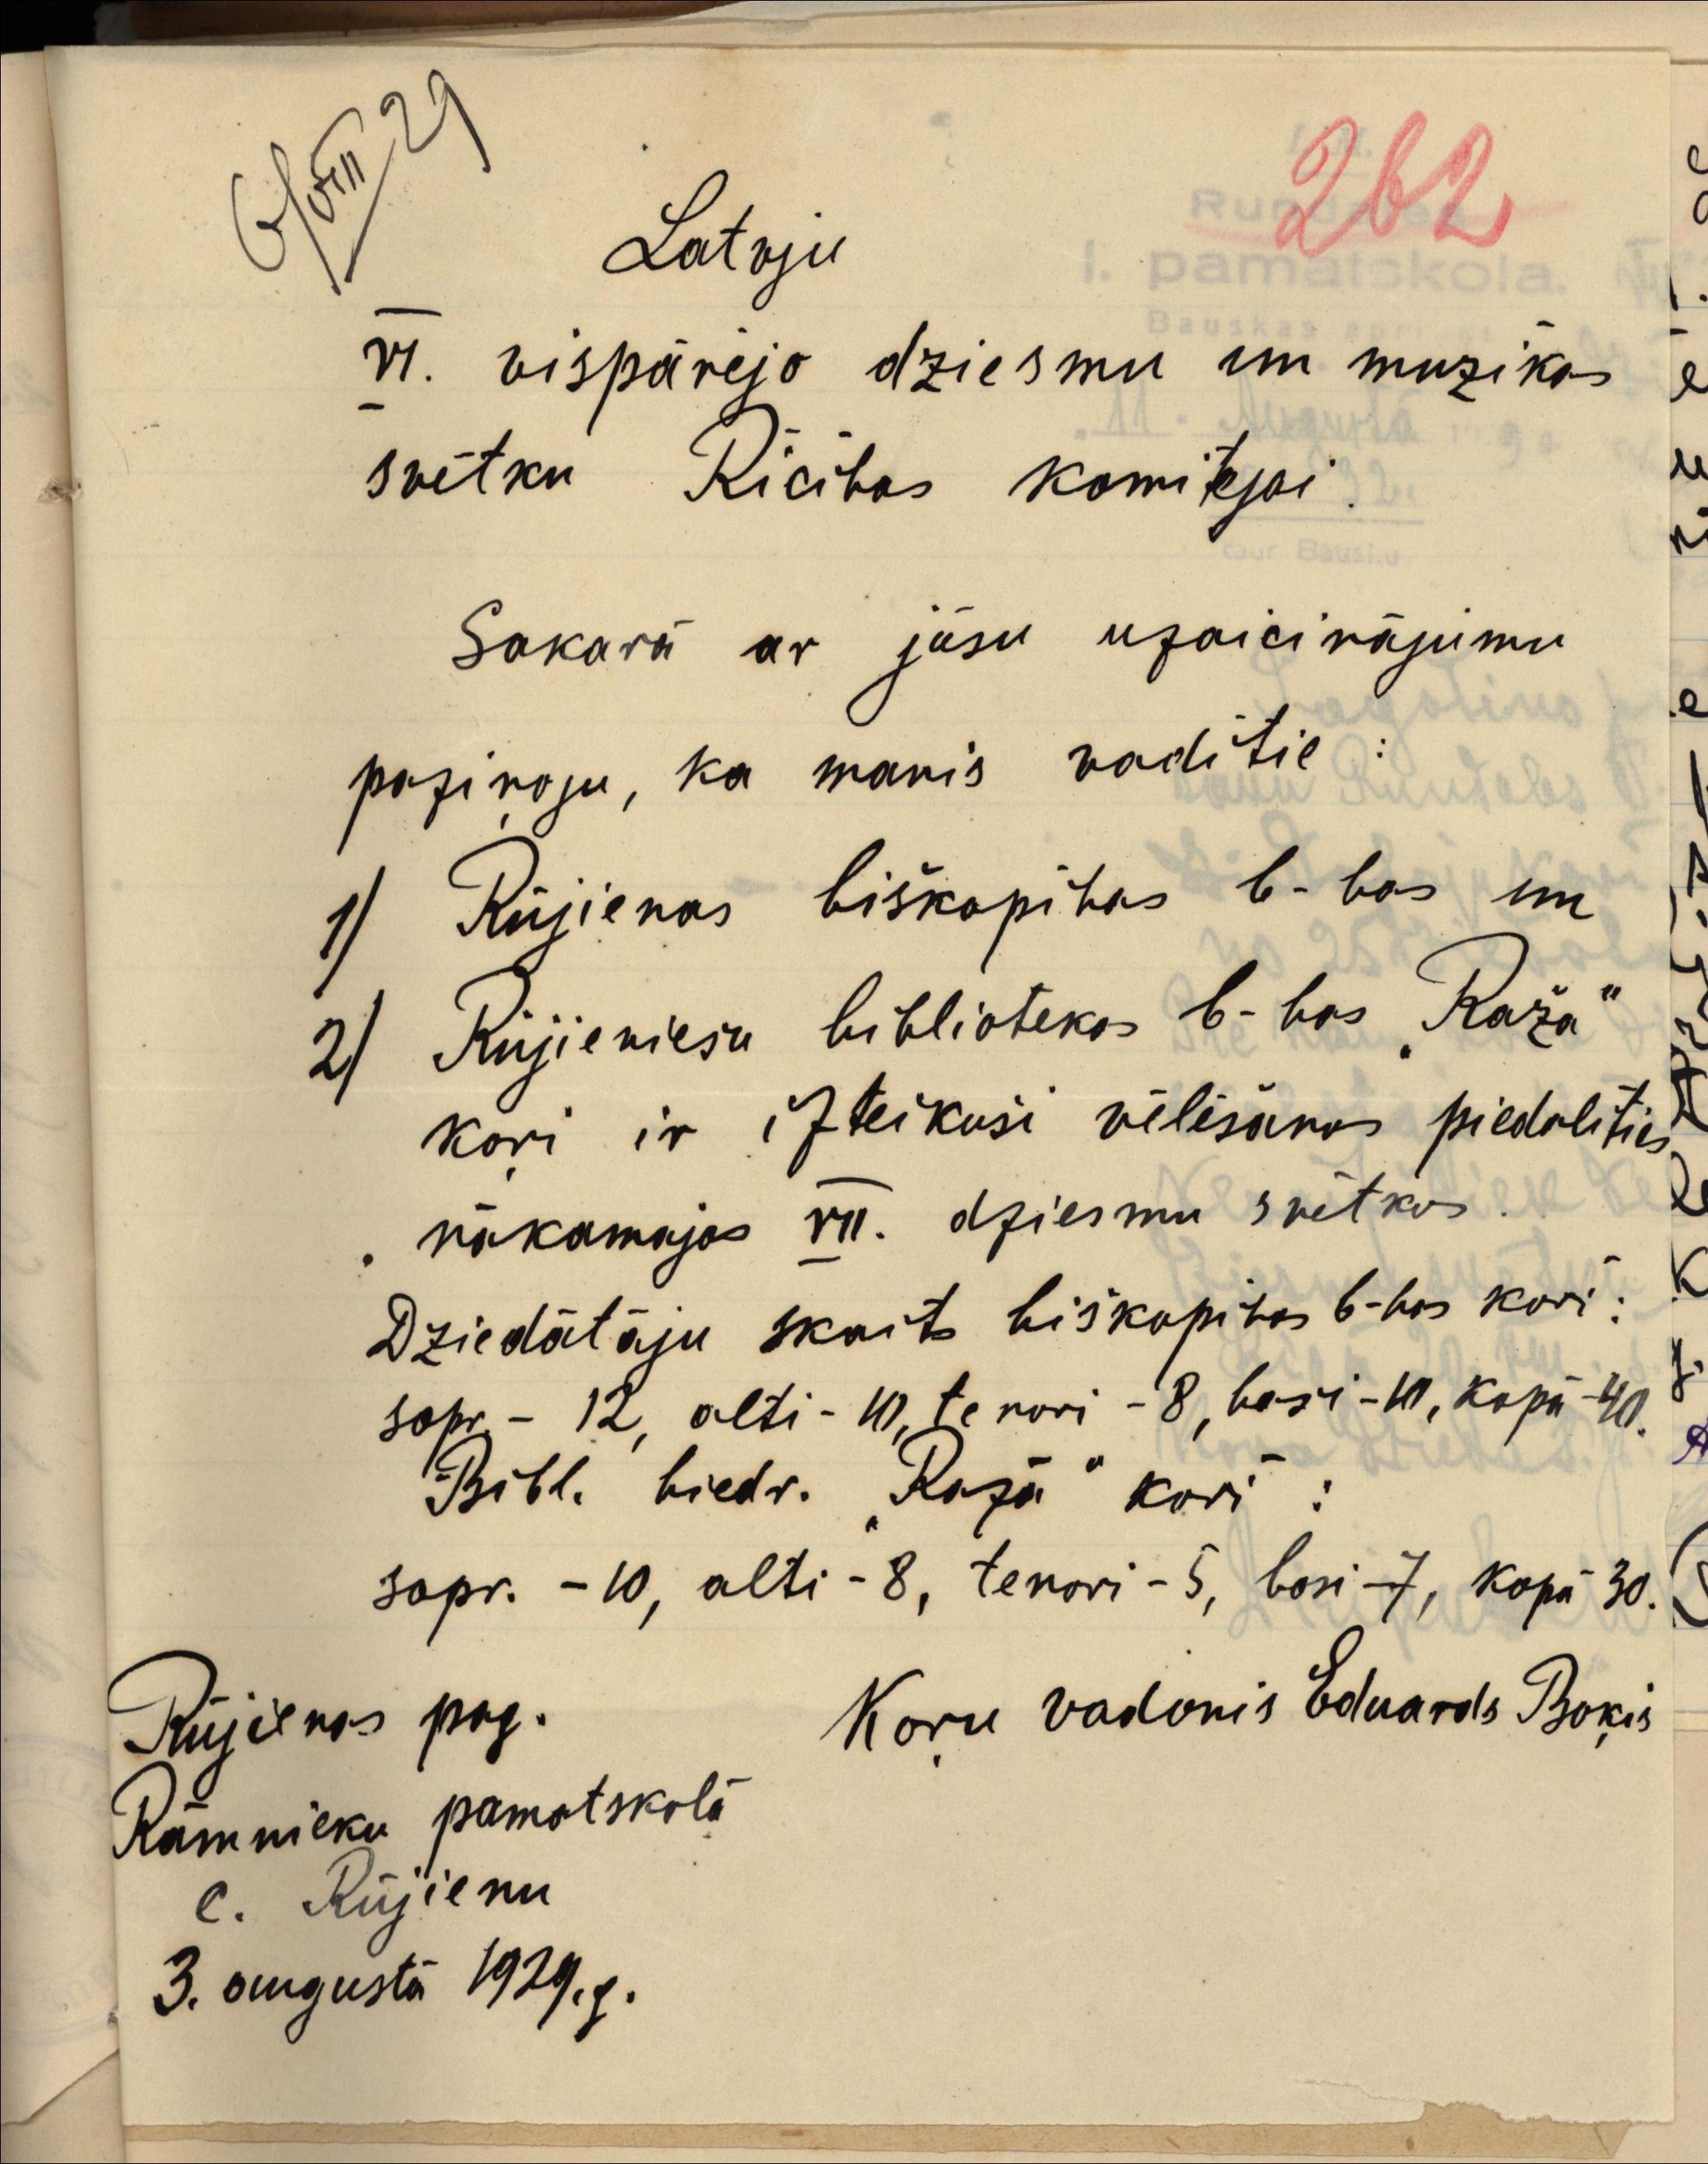 6/VIII 29
262
Latvju
VI. vispārējo dziesmu un muzikas
svētku Rīcības komitejai.
Sakarā ar jūsu uzaicinājumu
paziņoju, ka manis vadītie:
1) Rūjienas biškopības b-bas un
2) Rūjieniešu bibliotekas b-bas „Raža"
koŗi ir izteikuši vēlēšanos piedalīties
nākamajos VII. dziesmu svētkos.
Dziedātāju skaits biškopības b-bas korī:
sopr. - 12, alti - 10, tenori - 8, basi - 10, kopā - 40.
Bibl. biedr. „Raža" korī:
sopr. - 10, alti - 8, tenori - 5, basi - 7, kopā 30.
Koŗu vadonis Eduards Boķis
Rūjienas pag.
Rāmnieku pamatskolā
c. Rūjienu
3. augustā 1929. g.